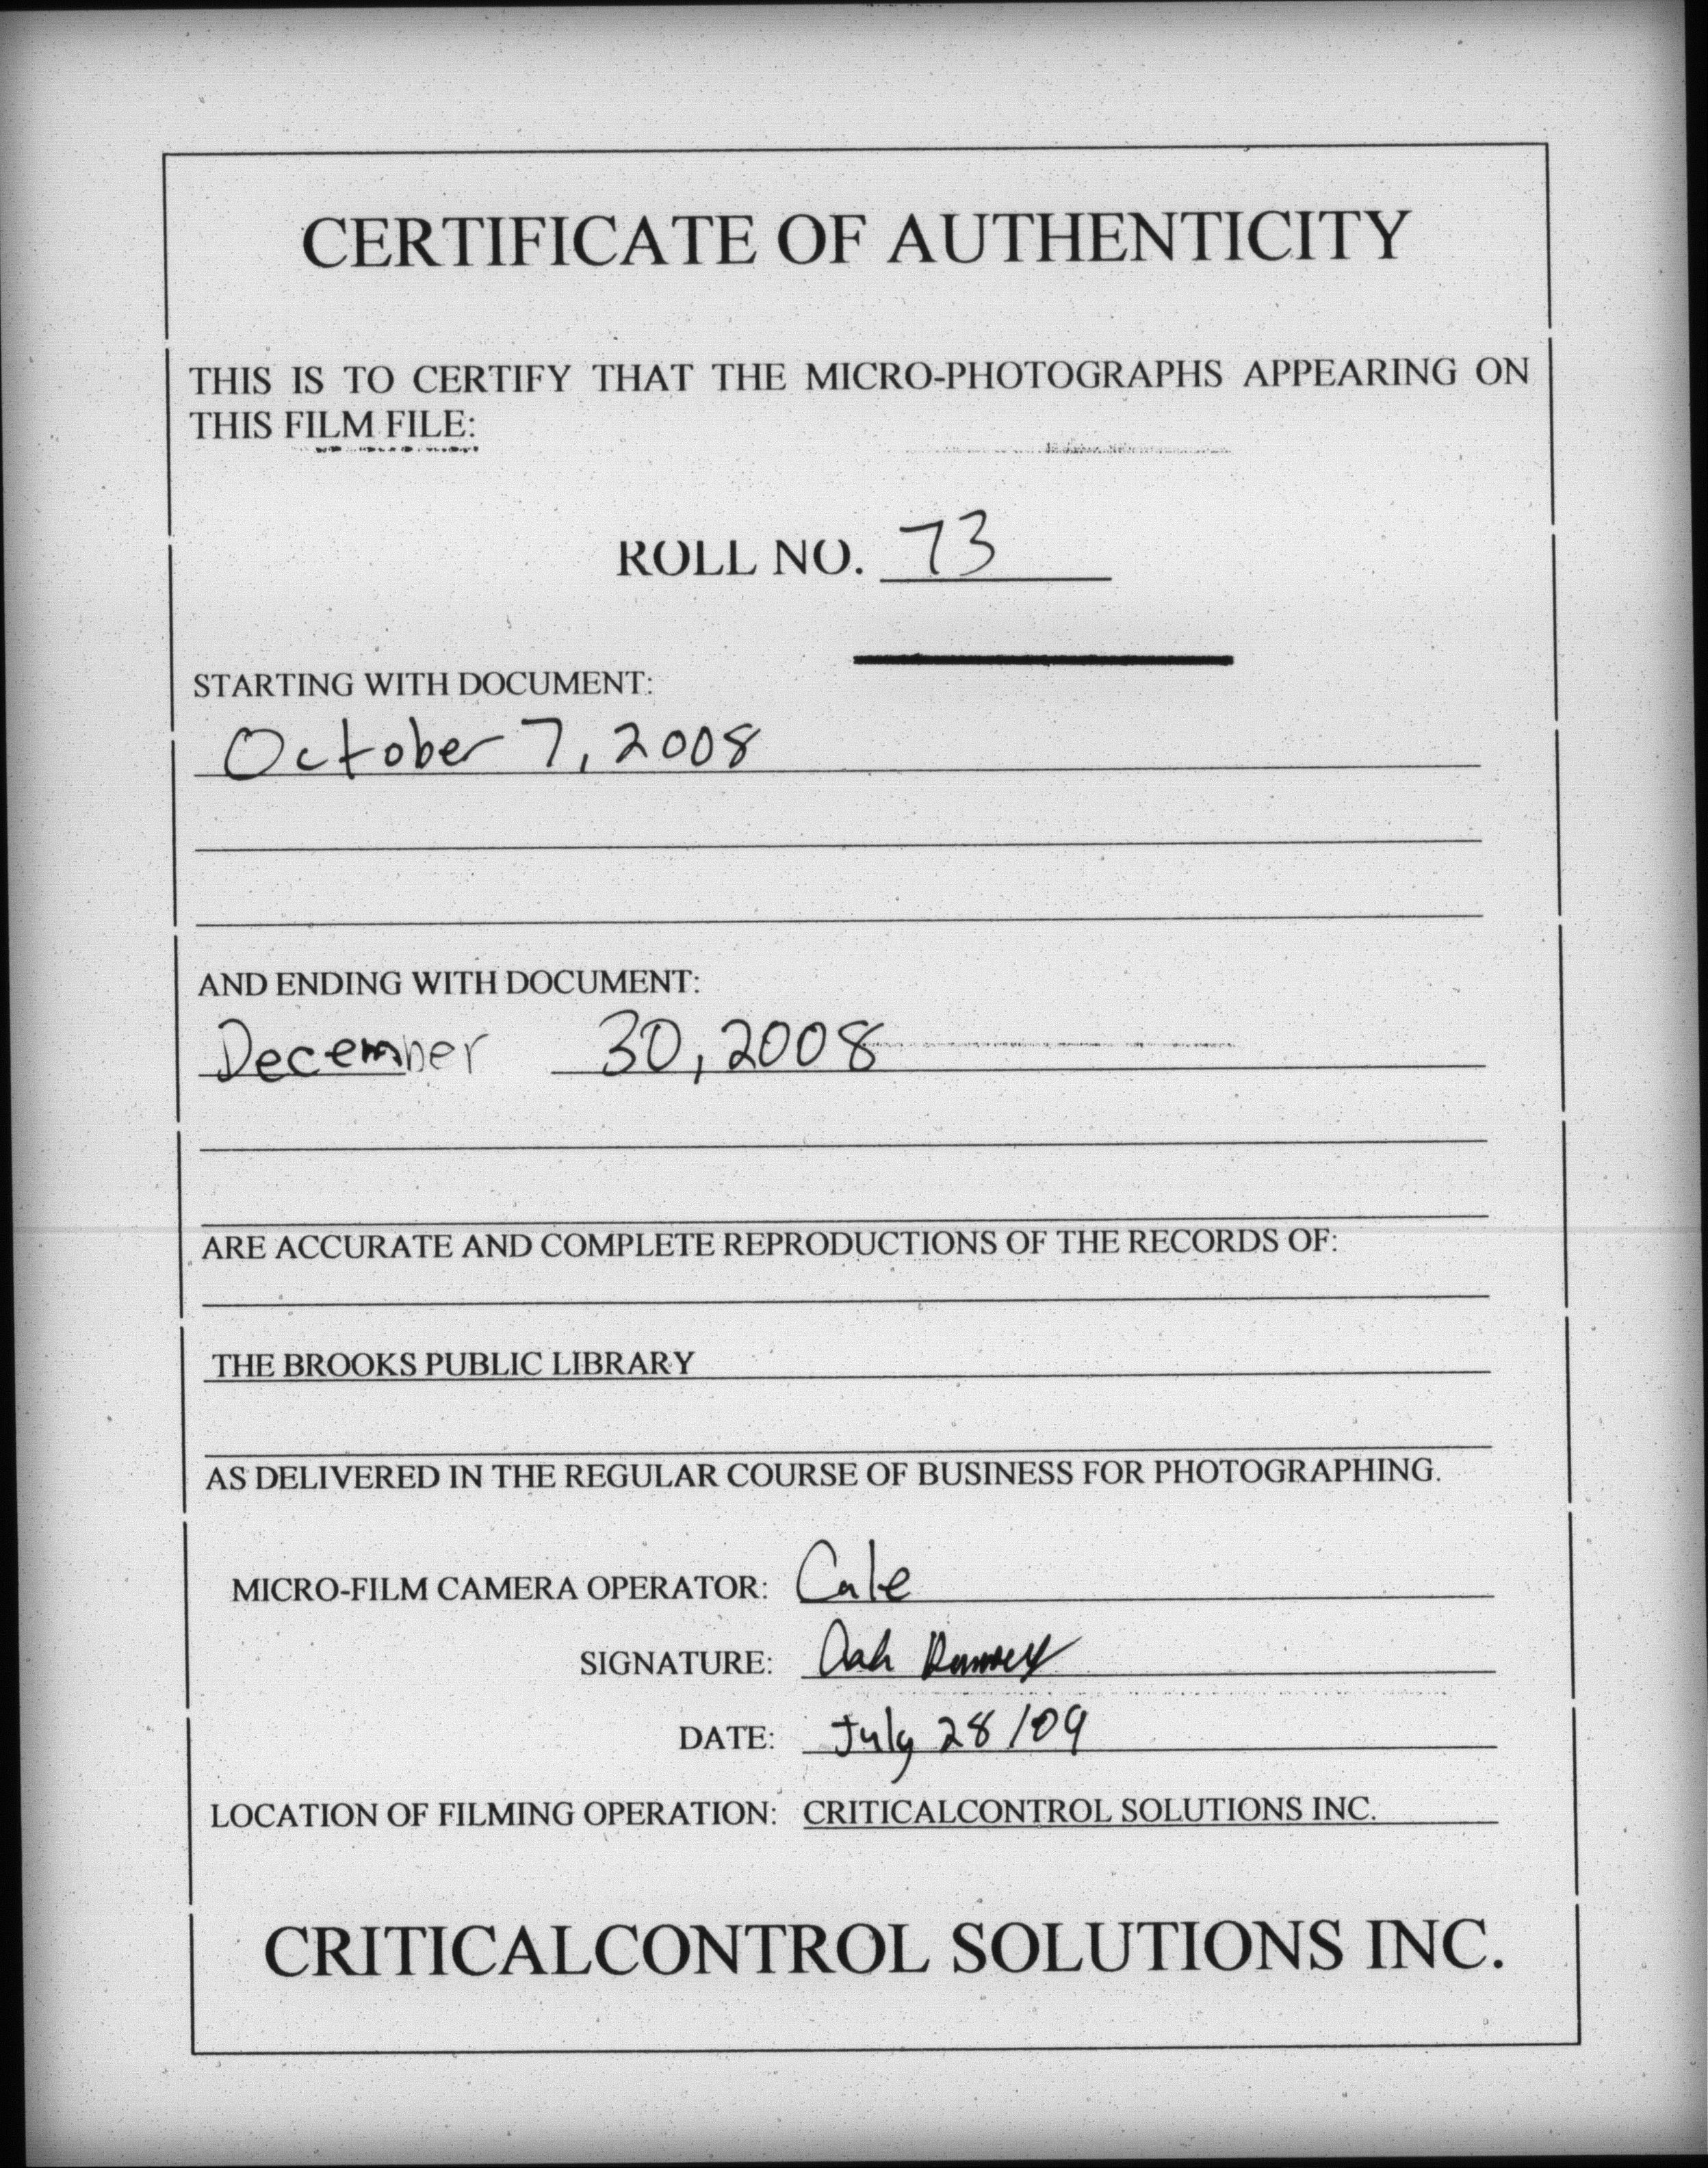 CERTIFICATE OF AUTHENTICITY
THIS IS TO CERTIFY THAT THE MICRO-PHOTOGRAPHS APPEARING ON
THIS FILM FILE:
ROLL NO. 73
STARTING WITH DOCUMENT:
October 7, 2008
AND ENDING WITH DOCUMENT:
December 30, 2008
ARE ACCURATE AND COMPLETE REPRODUCTIONS OF THE RECORDS OF:
THE BROOKS PUBLIC LIBRARY
AS DELIVERED IN THE REGULAR COURSE OF BUSINESS FOR PHOTOGRAPHING.
MICRO-FILM CAMERA OPERATOR: Cale
SIGNATURE:
DATE: July 28/09
LOCATION OF FILMING OPERATION: CRITICALCONTROL SOLUTIONS INC.
CRITICALCONTROL SOLUTIONS INC.